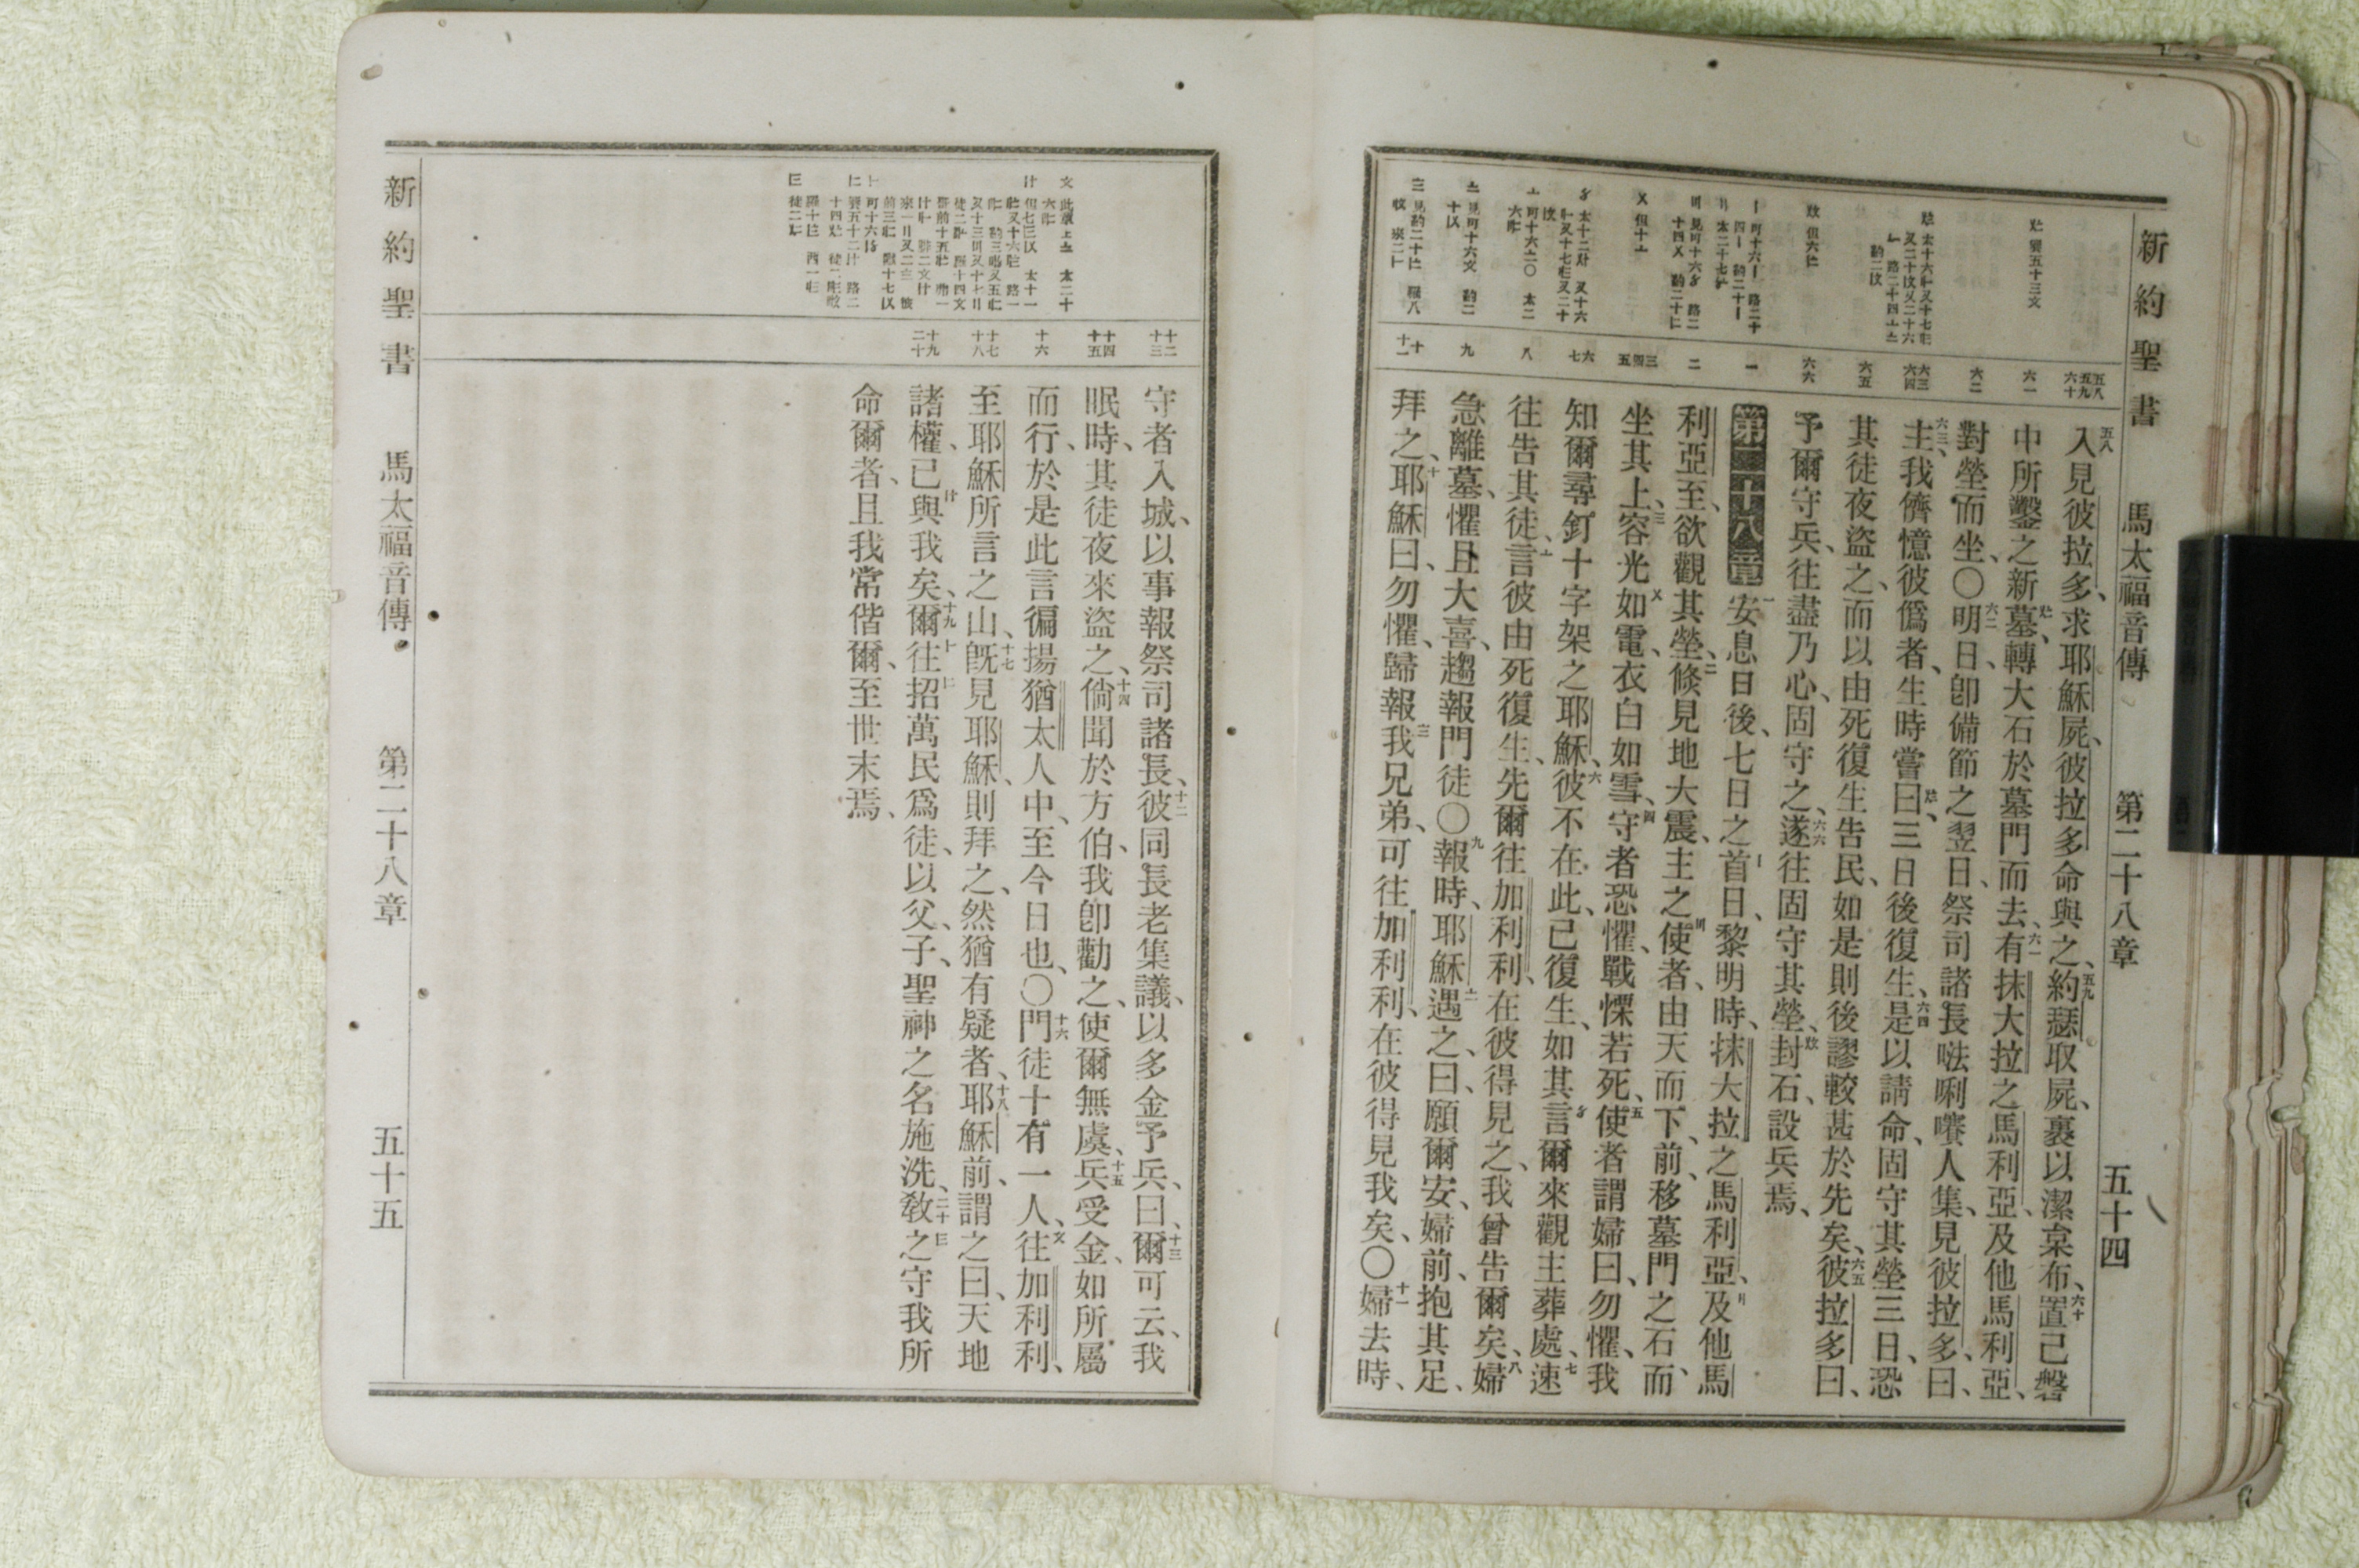 新約聖書 馬太福音傳 第二十八章 五十四
五八 五九 六十 六一 六二 六三 六四 六五 六六 一 二 三 四 五 六 七 八 九 十 十一
入見彼拉多、求耶穌屍、彼拉多命與之、約瑟取屍、裹以潔枲布、置己磐
中所鑿之新墓、轉大石於墓門而去、有抹大拉之馬利亞、及他馬利亞、
對塋而坐、〇明日、卽備節之翌日、祭司諸長𠵽唎㘔人集、見彼拉多、曰、
主、我儕憶彼僞者、生時嘗曰、三日後復生、是以請命、固守其塋三日、恐
其徒夜盜之、而以由死復生告民、如是則後謬較甚於先矣、彼拉多曰、
予爾守兵、往盡乃心、固守之、遂往固守其塋、封石、設兵焉、
第二十八章 安息日後、七日之首日、黎明時、抹大拉之馬利亞、及他馬
利亞至、欲觀其塋、倐見地大震、主之使者、由天而下、前、移墓門之石、而
坐其上、容光如電、衣白如雪、守者恐懼、戰慄若死、使者謂婦曰、勿懼、我
知爾尋釘十字架之耶穌、彼不在此、已復生、如其言爾來觀主葬處、速
往告其徒、言彼由死復生、先爾往加利利、在彼得見之、我曾告爾矣、婦
急離墓、懼且大喜、趨報門徒〇報時、耶穌遇之、曰、願爾安、婦前、抱其足、
拜之、耶穌曰、勿懼、歸報我兄弟、可往加利利、在彼得見我矣、〇婦去時、
十二 十三 十四 十五 十六 十七 十八 十九 二十
守者入城、以事報祭司諸長、彼同長老集議、以多金予兵、曰、爾可云、我
眠時、其徒夜來盜之、倘聞於方伯、我卽勸之、使爾無虞、兵受金、如所屬
而行、於是此言徧揚猶太人中、至今日也、〇門徒十有一人、往加利利、
至耶穌所言之山、旣見耶穌、則拜之、然猶有疑者、耶穌前、謂之曰、天地
諸權、已與我矣、爾往招萬民爲徒、以父、子、聖神之名施洗、敎之守我所
命爾者、且我常偕爾、至世末焉、
新約聖書 馬太福音傳 第二十八章 五十五